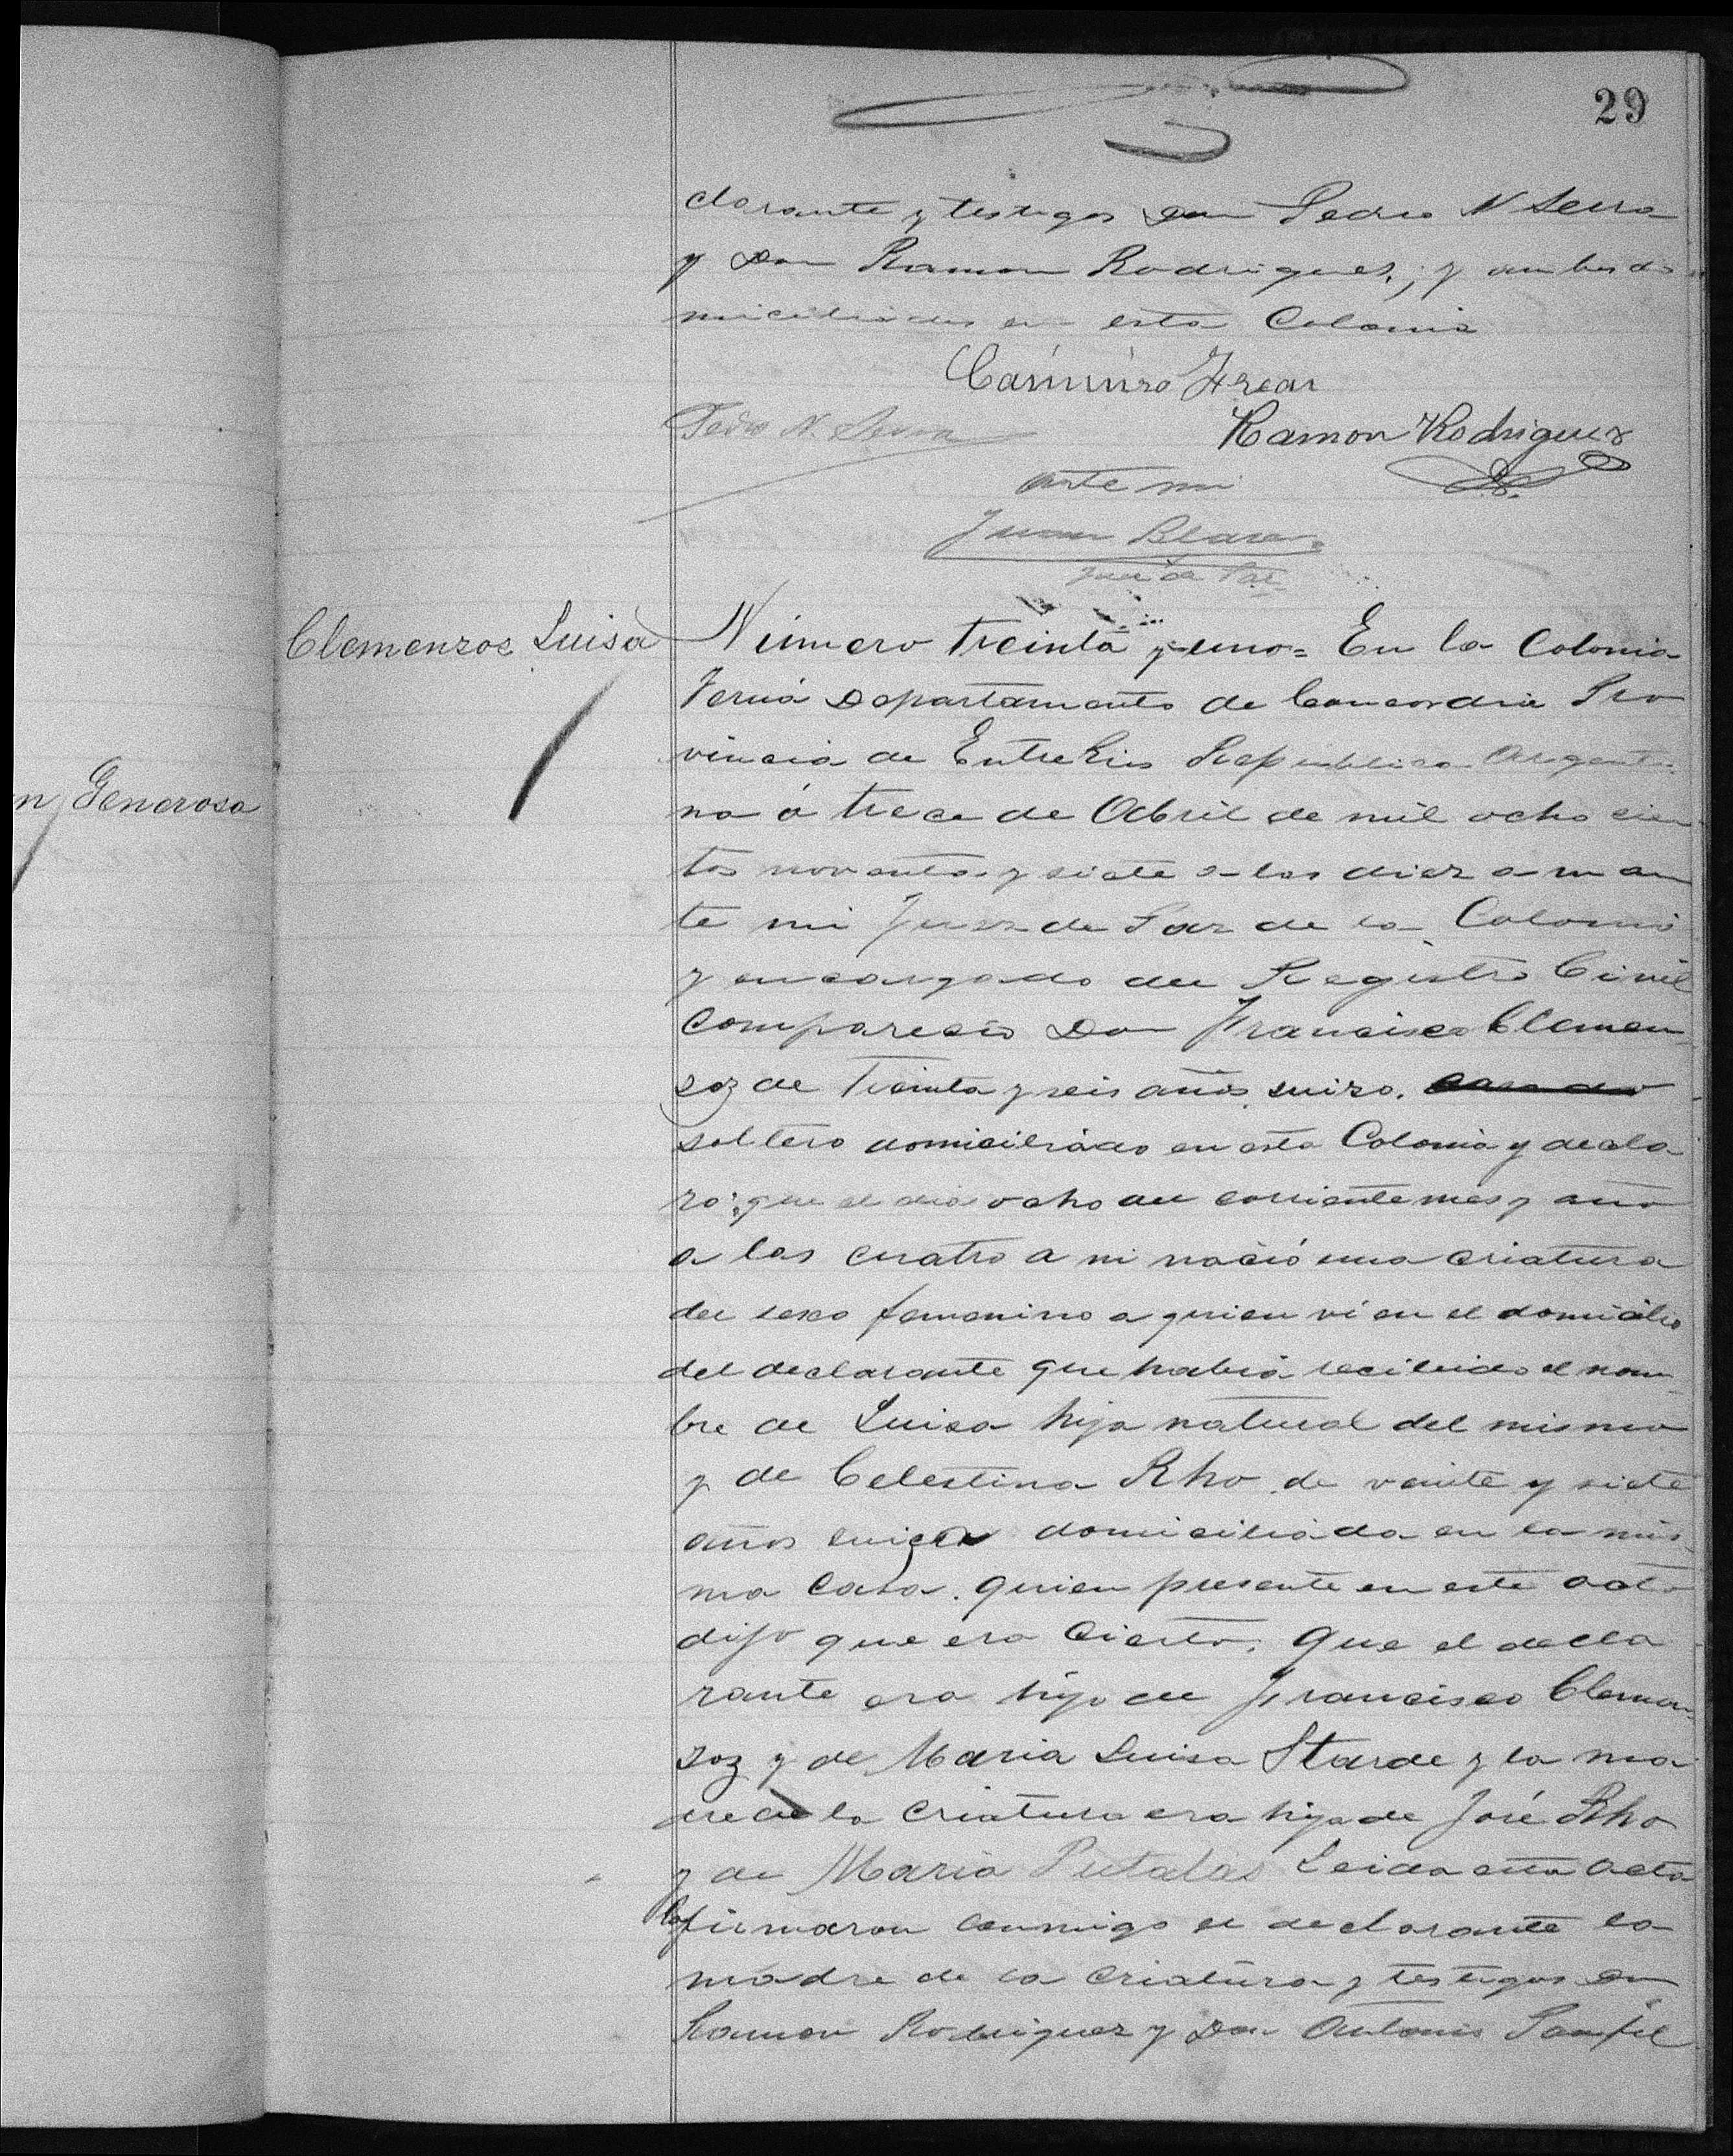 29
clarante y testigos Don Pedro N Serra
y Don Ramon Rodriguez; y ambos do
miciliados en esta Colonia
Casimiro
Pedro N Serra
Ramon Rodriguez
Ante mi
Juan
Juez de Paz
Clemenzoz Luisa
n Generosa
Número Treinta y uno= En la Colonia
Yeruá Departamento de Concordia Pro
vincia de Entre Rios Republica Argenti
na á trece de Abril de mil ocho cien
tos noventa y siete a las diez a m an
te mi Juez de Paz de la Colonia
y encargado del Registro Civil
Compareció Don Francisco Clemen
zoz de Treinta y seis años, suizo, casado
soltero domiciliado en esta Colonia y decla
ró: que el dia ocho del corriente mes y año
a las cuatro a m nació una criatura
del sexo femenino a quien vi en el domicilio
del declarante que habia recibido el nom
bre de Luisa hija natural del mismo
y de Celestina Rho de veinte y siete
años suiza domiciliada en la mis
ma Casa. quien presente en este acto
dijo que era Cierto. Que el decla
rante era hijo de Francisco Clemen
zoz y de Maria Luisa Starde y la ma
dre de la Criatura era hija de José Rho
y de Maria Putalas Leida esta Acta
la firmaron conmigo el declarante la
madre de la criatura y testigos Don
Ramon Rodriguez y Don Antonio